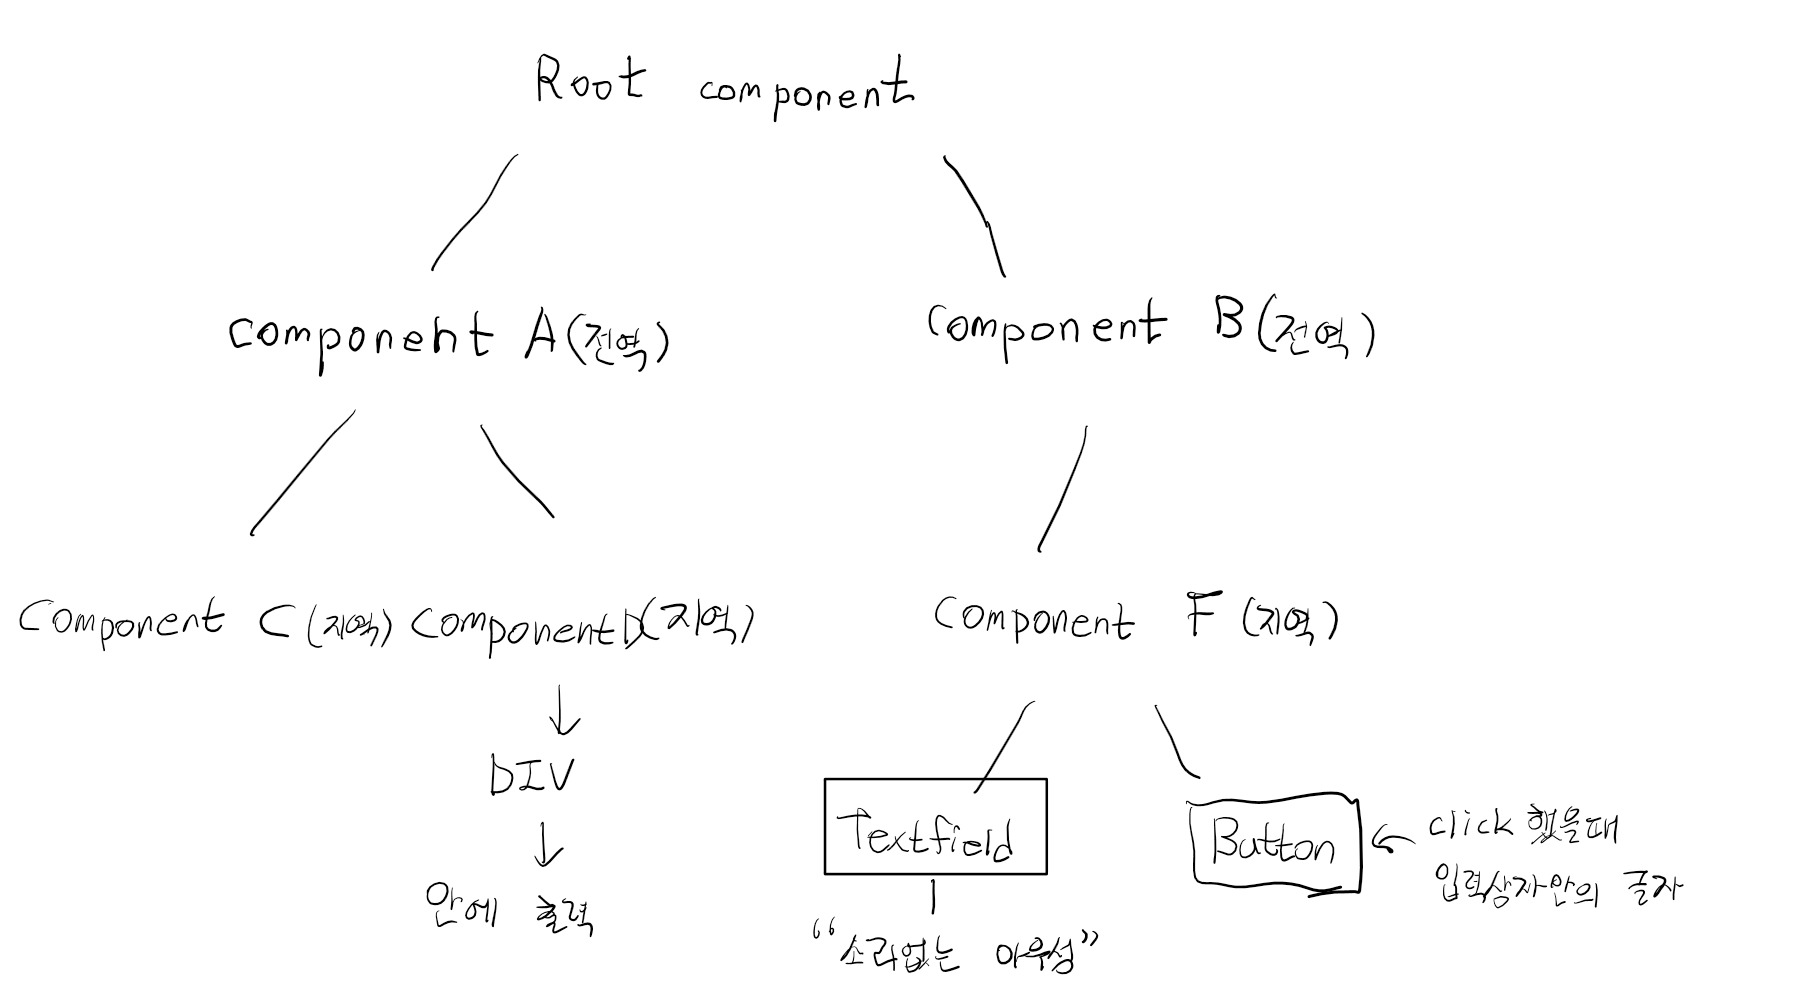 Root component
component A (전역)
component B (전역)
component C (지역)
component D (지역)
component F (지역)
DIV
안에 출력
Textfield
"소리없는 아우성"
Button
click 했을때
입력상자안의 글자